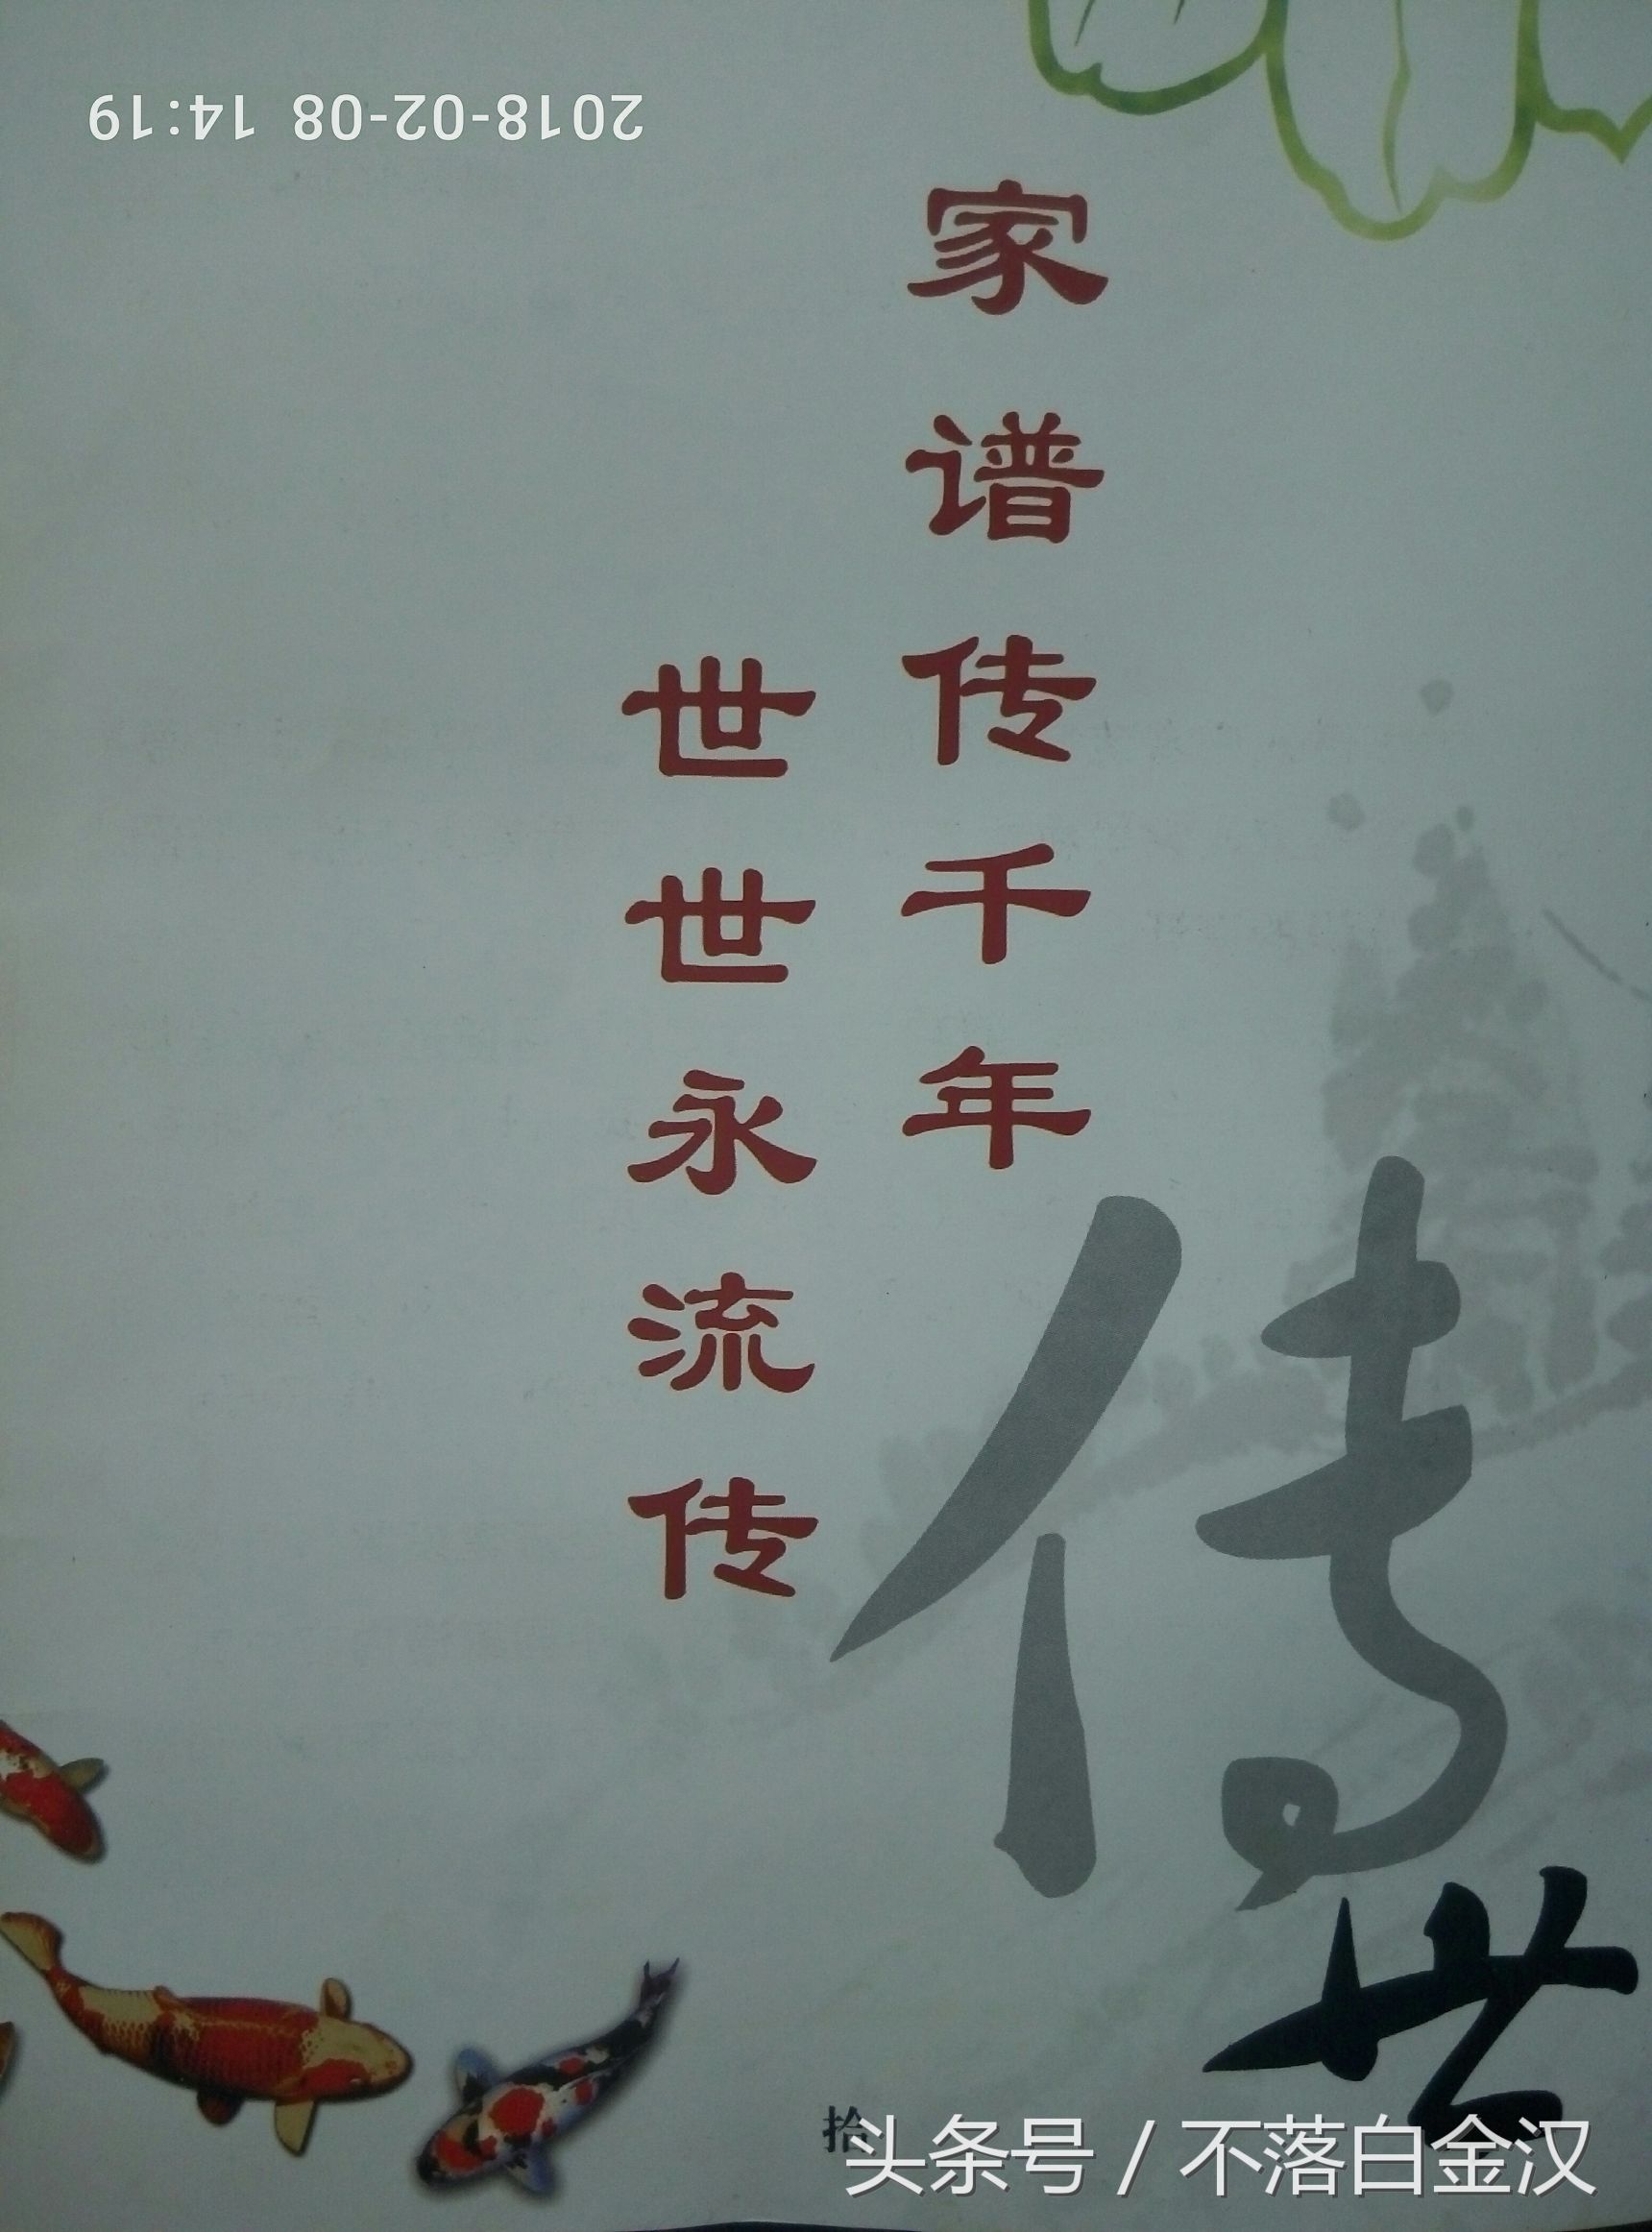 2018-02-08 14:19
家谱传千年
世世永流传
传
世
拾
头条号 / 不落白金汉